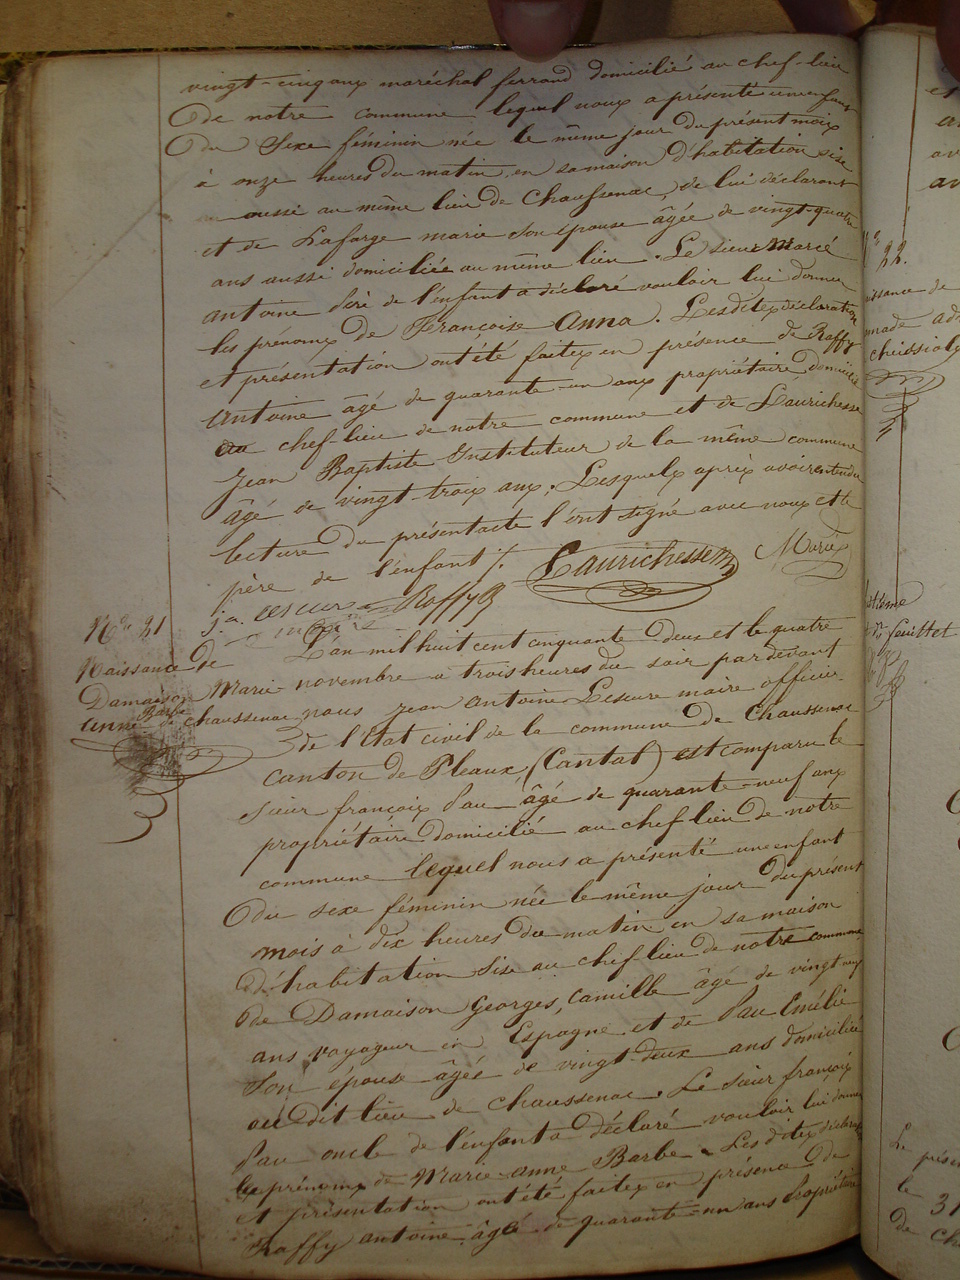 vingt-cinq ans maréchal ferrand domicilié au chef-lieu
de notre commune lequel nous a présenté un enfant
du sexe féminin née le même jour du présent mois
à onze heures du matin en sa maison d'habitation sise
aussi au même lieu de Chaussenac, de lui déclarant
et de Lafarge marie son épouse âgée de vingt-quatre
ans aussi domiciliée au même lieu. Le sieur
antoine père de l'enfant a déclaré vouloir lui donner
les prénoms de Françoise Anna. Lesdites déclaration
et présentation ont été faites en présence de Raffy
Antoine âgé de quarante-un ans propriétaire domicilié
au chef lieu de notre commune et de Laurichesse
Jean Baptiste Instituteur de la même commune
âgé de vingt-trois ans. Lesquels après avoir entendu
lecture du présent acte l'ont signé avec nous et le
père de l'enfant ./.
Laurichesse
Raffy
No. 21
Naissance de
Damaison
Marie
anne Barbe
de chaussenac
L'an mil huit cent cinquante deux et le quatre
novembre à trois heures du soir par devant
nous Jean Antoine Lescure maire officier
de l'Etat civil de la commune de Chaussenac
canton de Pleaux, (Cantal) est comparu le
sieur françois Pau âgé de quarante-neuf ans
propriétaire domicilié au chef lieu de notre
commune lequel nous a présenté un enfant
du sexe féminin née le même jour du présent
mois à dix heures du matin en sa maison
d'habitation sise au chef lieu de notre commune
de Damaison Georges, Camille âgé de vingt neuf
ans voyageur en Espagne et de Pau Emélie
son épouse âgée de vingt-deux ans domiciliée
au dit lieu de chaussenac. Le sieur françois
Pau oncle de l'enfant a déclaré vouloir lui donner
les prénoms de Marie-anne Barbe. Les dites déclaration
et présentation ont été faites en présence de
Raffy antoine âgé de quarante-un ans Propriétaire
22.
feuillet
31